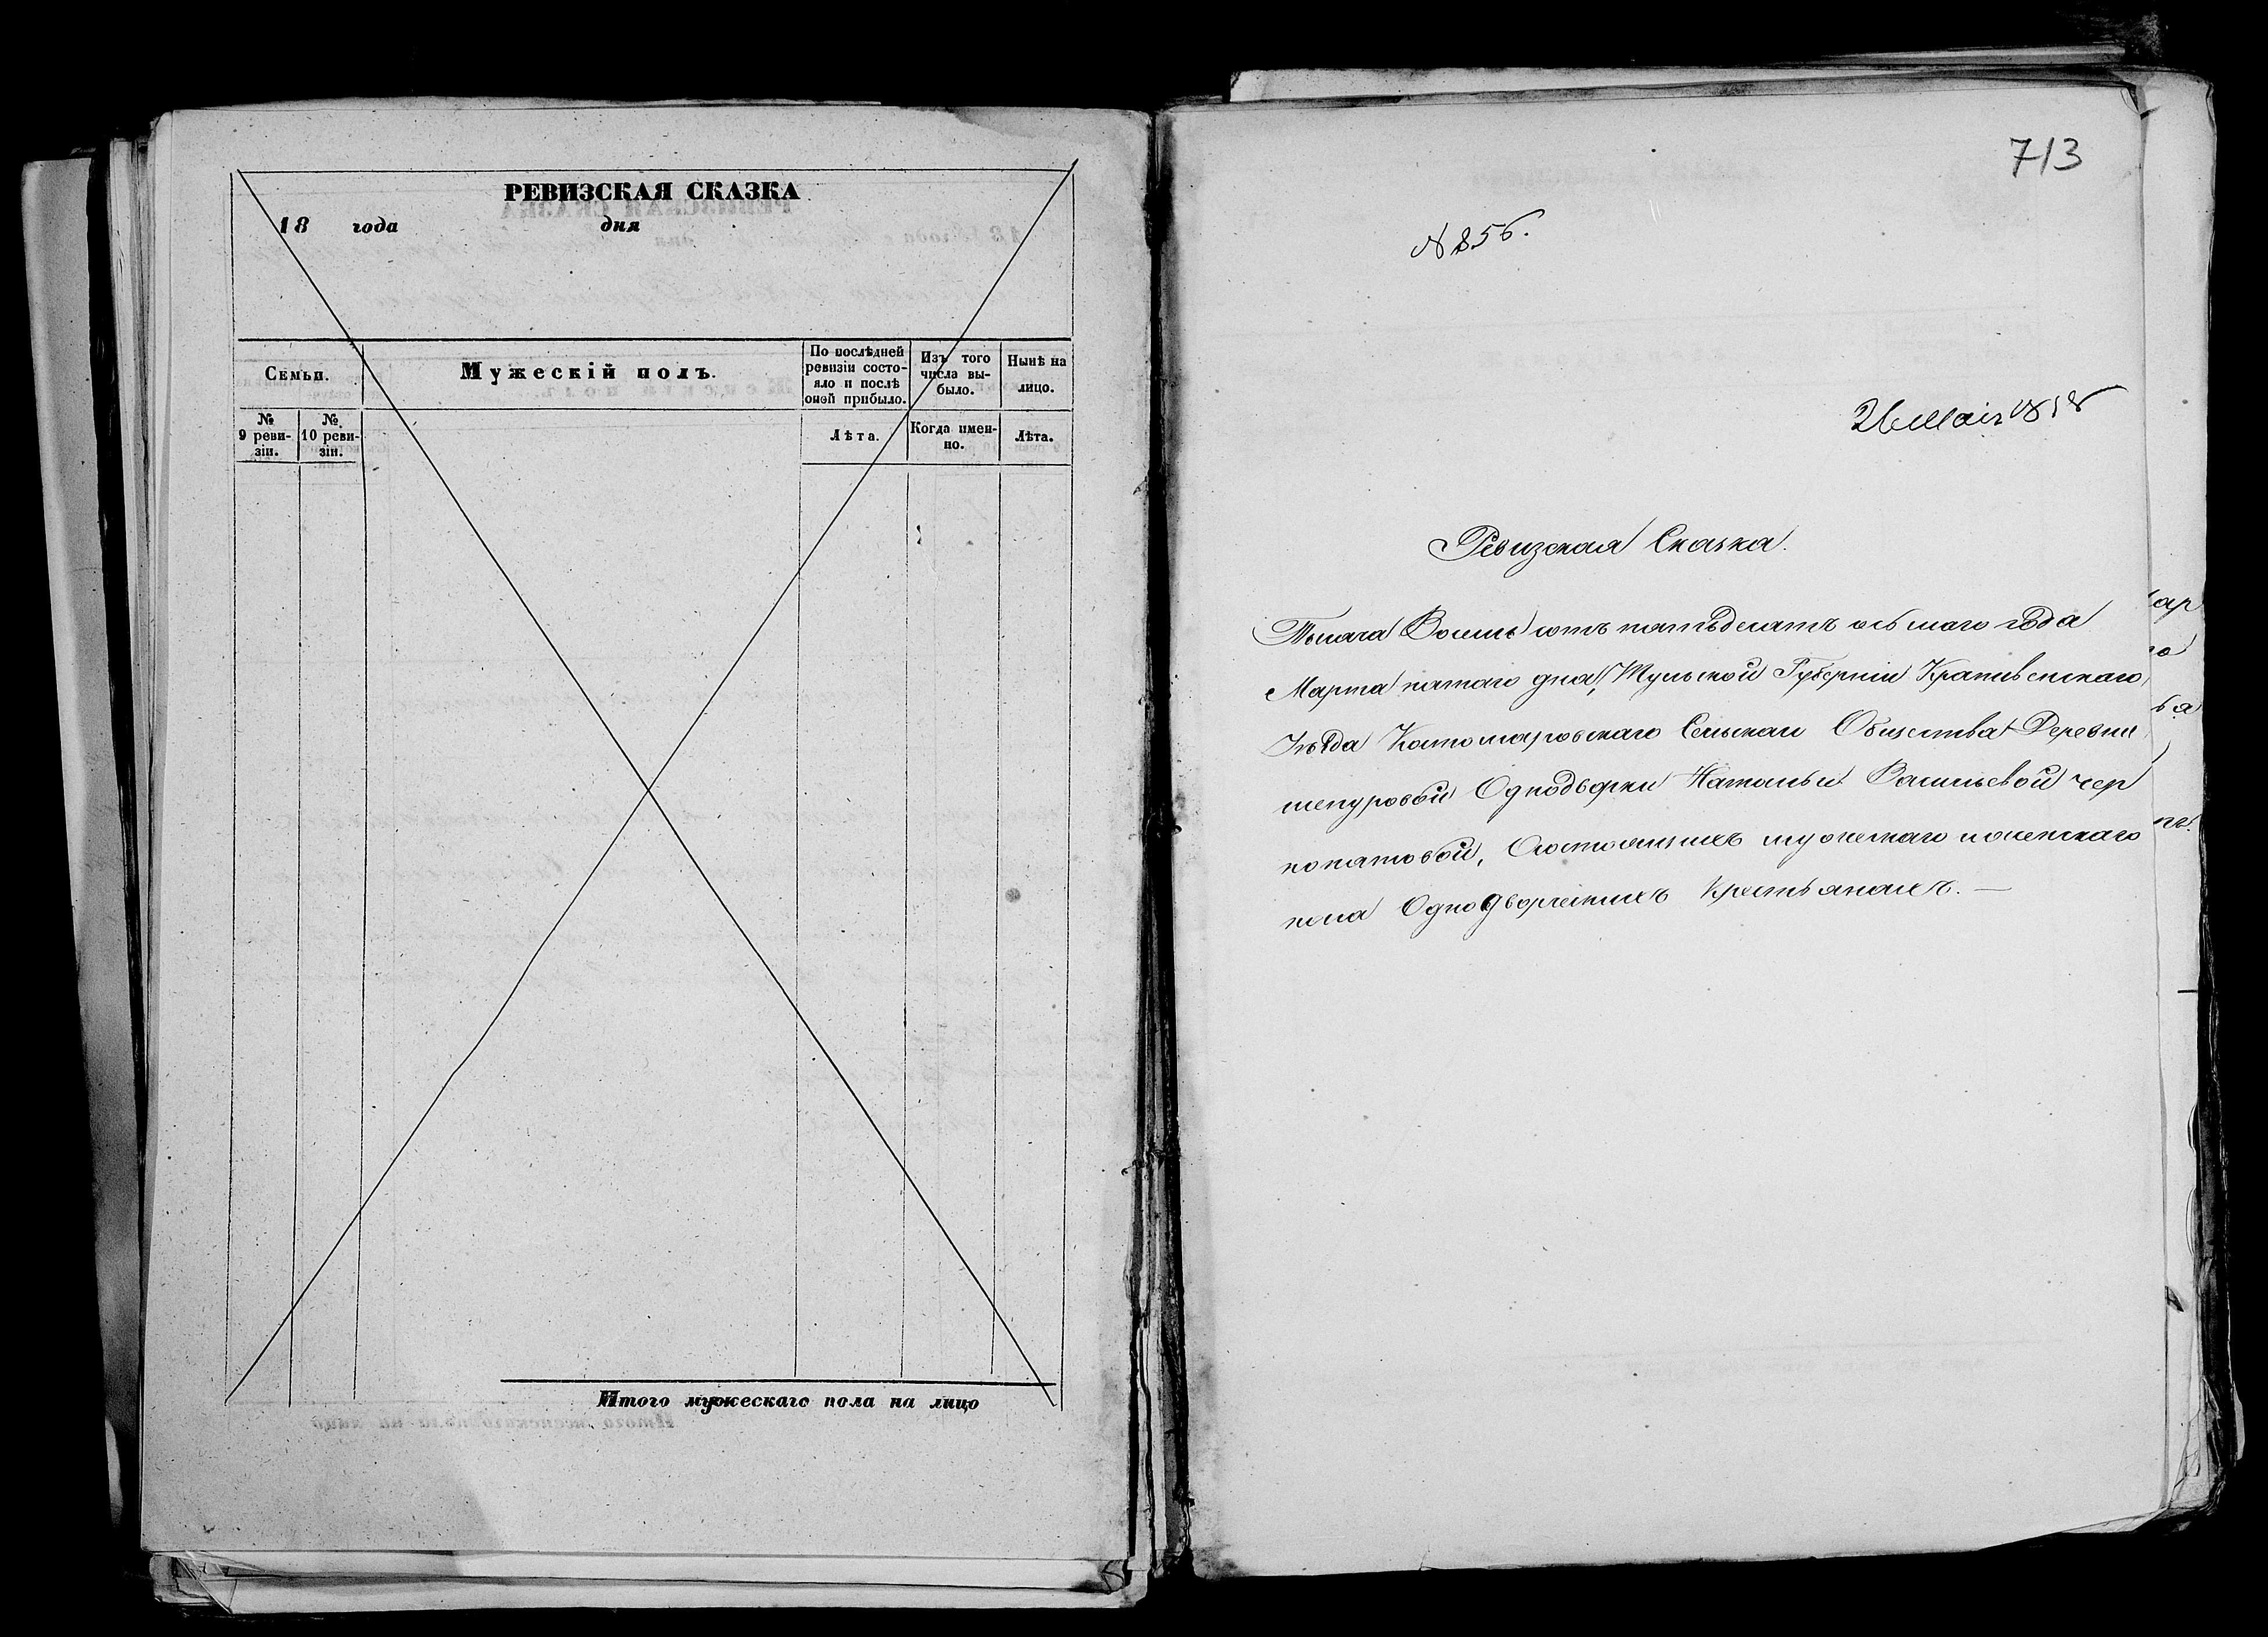 РЕВИЗСКАЯ СКАЗКА
18 года дня
Семьи.
Мужескій полъ.
По послѣдней ревизіи состо-
яло и послѣ
оной прибыло.
Изъ того
числа вы-
было.
Нынѣ на
лицо.
№
9 реви-
зіи.
№
10 реви-
зіи.
Лѣта.
Когда имен-
но.
Лѣта.
Итого мужескаго пола на лицо
713
№ 856.
26 Маія 1858
Ревизская Сказка.
Тысяча Восемь сотъ пятьдесятъ осьмаго года
Марта пятаго дня, Тульской Губерніи Крапивенскаго
Уѣзда Костомаровскаго Сельскаго Общества Деревни
Однодворки Натальи Васильевой
Состоящихъ мужескаго и женскаго
пола Однодворческихъ Крестьянахъ. —